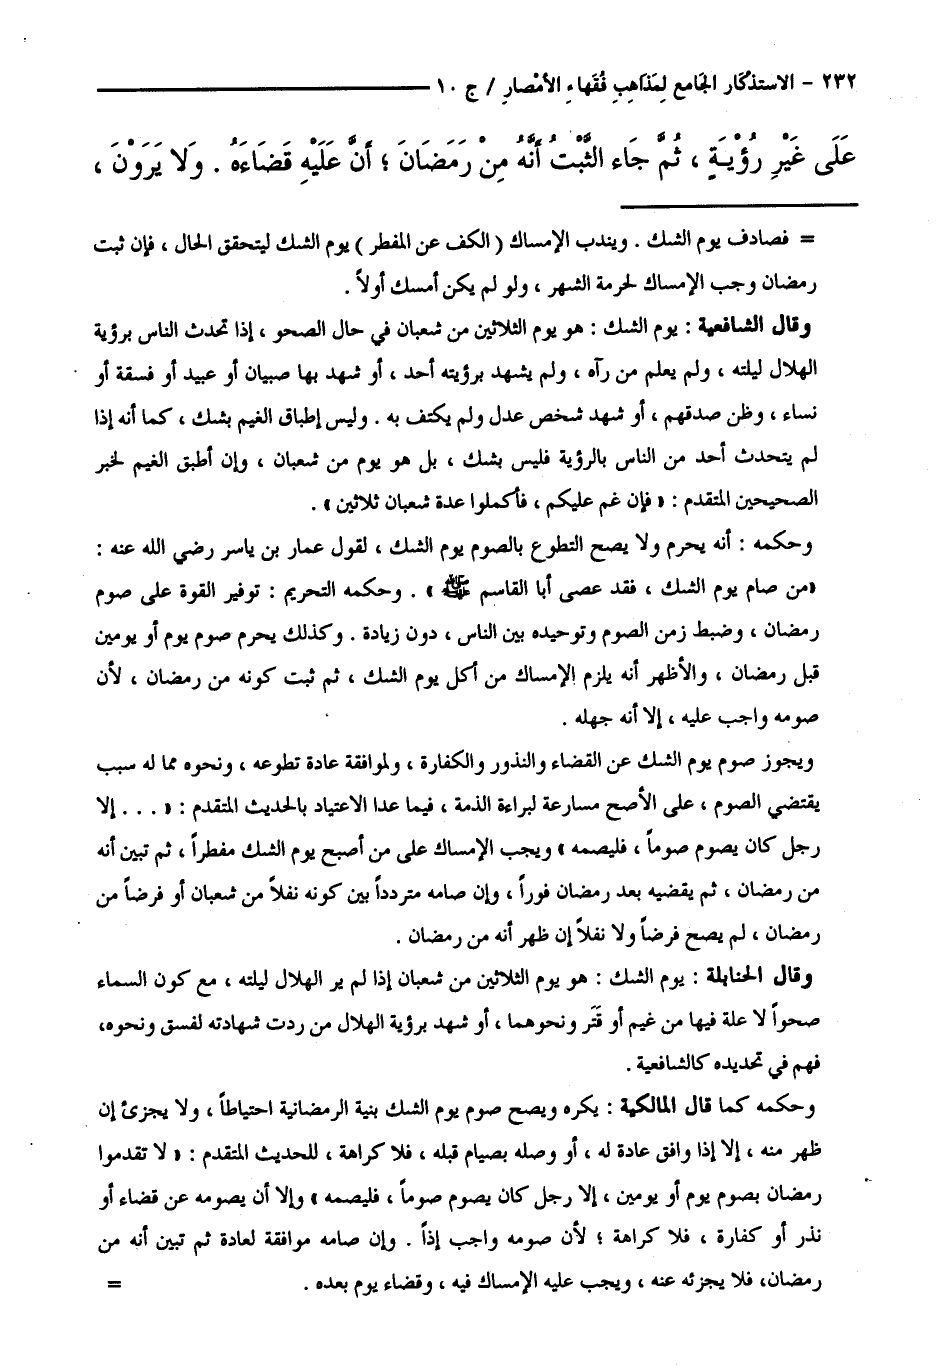 ٢٣٢ - الاستذكار الجامع لِمَذاهِبِ فُقَهاءِ الأمْصارِ / ج ١٠
عَلَى غَيْرِ رُؤْيَةٍ ، ثُمَّ جَاء الثَّبْتُ أَنَّهُ مِنْ رَمَضَانَ ؛ أَنَّ عَلَيْهِ قَضَاءَهُ . وَلا يَرَوْنَ ،
= فصادف يوم الشك . ويندب الإمساك ( الكف عن المفطر ) يوم الشك ليتحقق الحال ، فإن ثبت
رمضان وجب الإمساك لحرمة الشهر ، ولو لم يكن أمسك أولاً .
وقال الشافعية : يوم الشك : هو يوم الثلاثين من شعبان في حال الصحو ، إذا تحدث الناس برؤية
الهلال ليلته ، ولم يعلم من رآه ، ولم يشهد برؤيته أحد ، أو شهد بها صبيان أو عبيد أو فسقة أو
نساء ، وظن صدقهم ، أو شهد شخص عدل ولم يكتف به . وليس إطباق الغيم بشك ، كما أنه إذا
لم يتحدث أحد من الناس بالرؤية فليس بشك ، بل هو يوم من شعبان ، وإن أطبق الغيم لخبر
الصحيحين المتقدم : « فإن غم عليكم ، فأكملوا عدة شعبان ثلاثين » .
وحكمه : أنه يحرم ولا يصح التطوع بالصوم يوم الشك ، لقول عمار بن ياسر رضي الله عنه :
«من صام يوم الشك ، فقد عصى أبا القاسم ﷺ » . وحكمه التحريم : توفير القوة على صوم
رمضان ، وضبط زمن الصوم وتوحيده بين الناس ، دون زيادة . وكذلك يحرم صوم يوم أو يومين
قبل رمضان ، والأظهر أنه يلزم الإمساك من أكل يوم الشك ، ثم ثبت كونه من رمضان ، لأن
صومه واجب عليه ، إلا أنه جهله .
ويجوز صوم يوم الشك عن القضاء والنذور والكفارة ، ولموافقة عادة تطوعه ، ونحوه مما له سبب
يقتضي الصوم ، على الأصح مسارعة لبراءة الذمة ، فيما عدا الاعتياد بالحديث المتقدم : « . . . إلا
رجل كان يصوم صوماً ، فليصمه » ويجب الإمساك على من أصبح يوم الشك مفطراً ، ثم تبين أنه
من رمضان ، ثم يقضيه بعد رمضان فوراً ، وإن صامه متردداً بين كونه نفلاً من شعبان أو فرضاً من
رمضان ، لم يصح فرضاً ولا نفلاً إن ظهر أنه من رمضان .
وقال الحنابلة : يوم الشك : هو يوم الثلاثين من شعبان إذا لم ير الهلال ليلته ، مع كون السماء
صحواً لا علة فيها من غيم أو قَتَر ونحوهما ، أو شهد برؤية الهلال من ردت شهادته لفسق ونحوه،
فهم في تحديده كالشافعية .
وحكمه كما قال المالكية : يكره ويصح صوم يوم الشك بنية الرمضانية احتياطاً ، ولا يجزئ إن
ظهر منه ، إلا إذا وافق عادة له ، أو وصله بصيام قبله ، فلا كراهة ، للحديث المتقدم : « لا تقدموا
رمضان بصوم يوم أو يومين ، إلا رجل كان يصوم صوماً ، فليصمه » وإلا أن يصومه عن قضاء أو
نذر أو كفارة ، فلا كراهة ؛ لأن صومه واجب إذاً . وإن صامه موافقة لعادة ثم تبين أنه من
رمضان، فلا يجزئه عنه ، ويجب عليه الإمساك فيه ، وقضاء يوم بعده . =